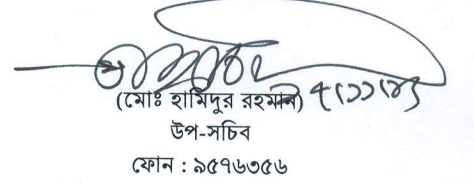 (মোঃ হামিদুর রহমান)
উপ-সচিব
ফোন : ৯৫৭৬৩৫৬